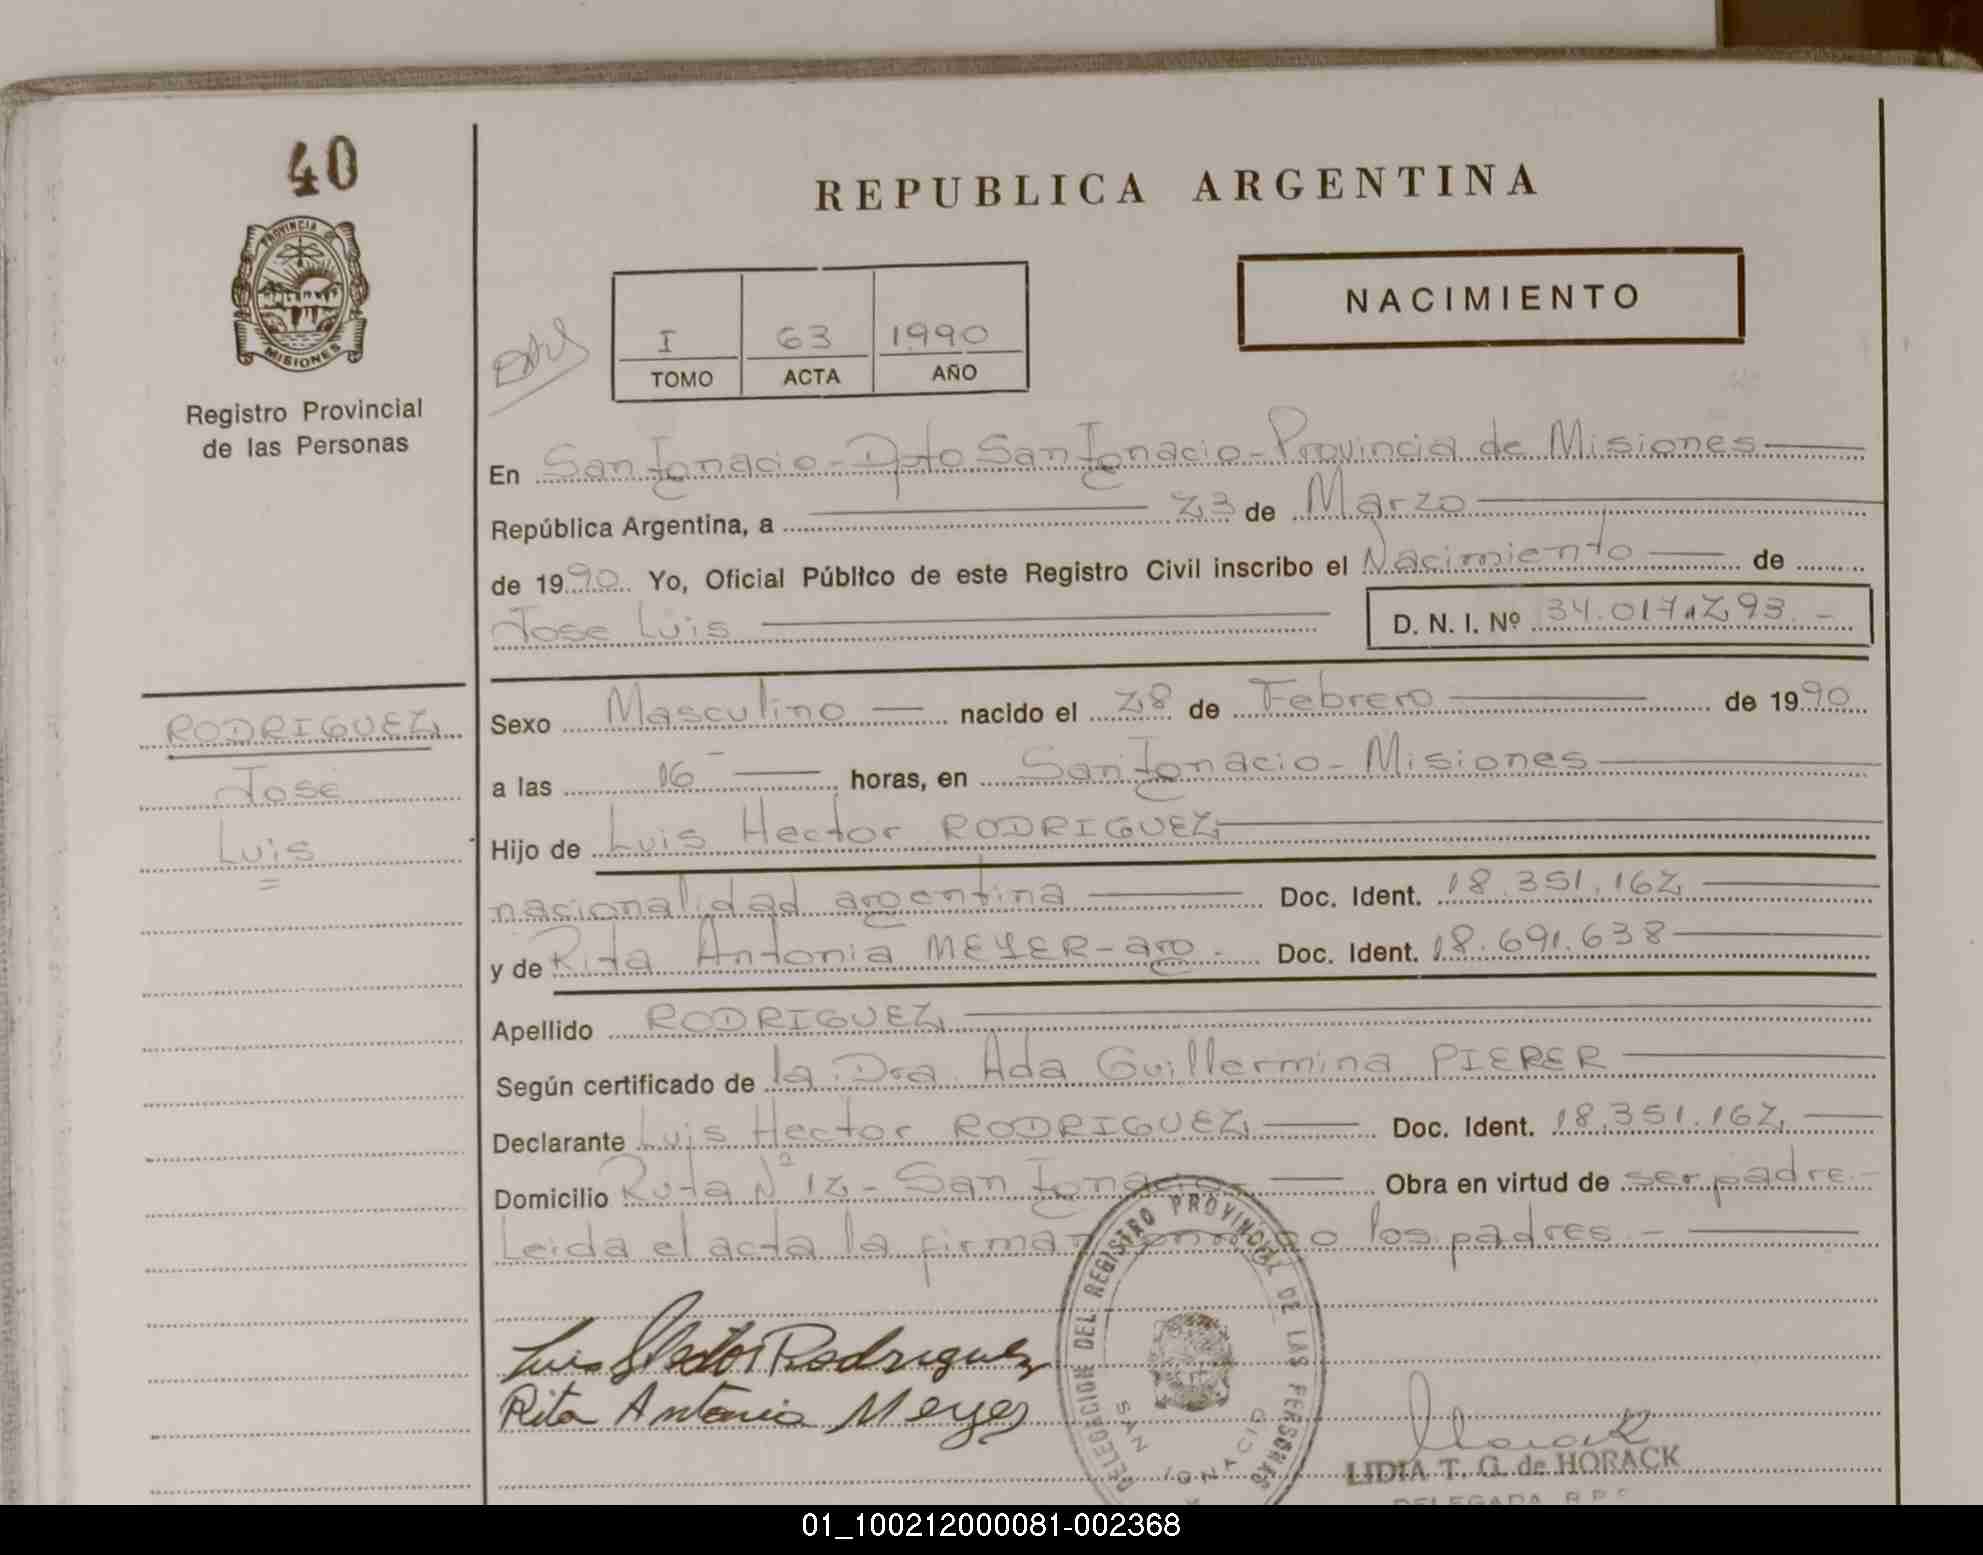 40
REPUBLICA ARGENTINA
PROVINCIA DE
MISIONES
Registro Provincial
de las Personas
NACIMIENTO
I 63 1990
TOMO ACTA AÑO
En San Ignacio - Dpto San Ignacio - Provincia de Misiones
República Argentina, a 23 de Marzo
de 1990 Yo, Oficial Público de este Registro Civil inscribo el Nacimiento de
Jose Luis D. N. I. Nº 34.017.293.-
RODRIGUEZ
José
Luis
Sexo Masculino nacido el 28 de Febrero de 1990
a las 16 horas, en San Ignacio - Misiones
Hijo de Luis Hector RODRIGUEZ
nacionalidad argentina Doc. Ident. 18.351.162
y de Rita Antonia MEYER - arg. Doc. Ident. 18.691.638
Apellido RODRIGUEZ
Según certificado de la Dra. Ada Guillermina PIERER
Declarante Luis Hector RODRIGUEZ Doc. Ident. 18.351.162
Domicilio Ruta Nº 12 - San Ignacio Obra en virtud de ser padre.-
Leida el acta la firman conmigo los padres.-
Luis Hector Rodriguez
Rita Antonia Meyer
DELEGACION DEL REGISTRO PROVINCIAL DE LAS PERSONAS
SAN IGNACIO
LIDIA T. G. de HORACK
DELEGADA R.P.
01_100212000081-002368